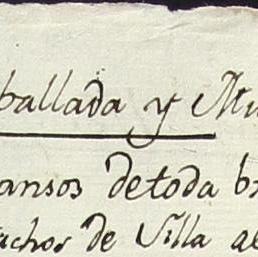 ballada y Mu
ansos detoda br
achos de Silla al